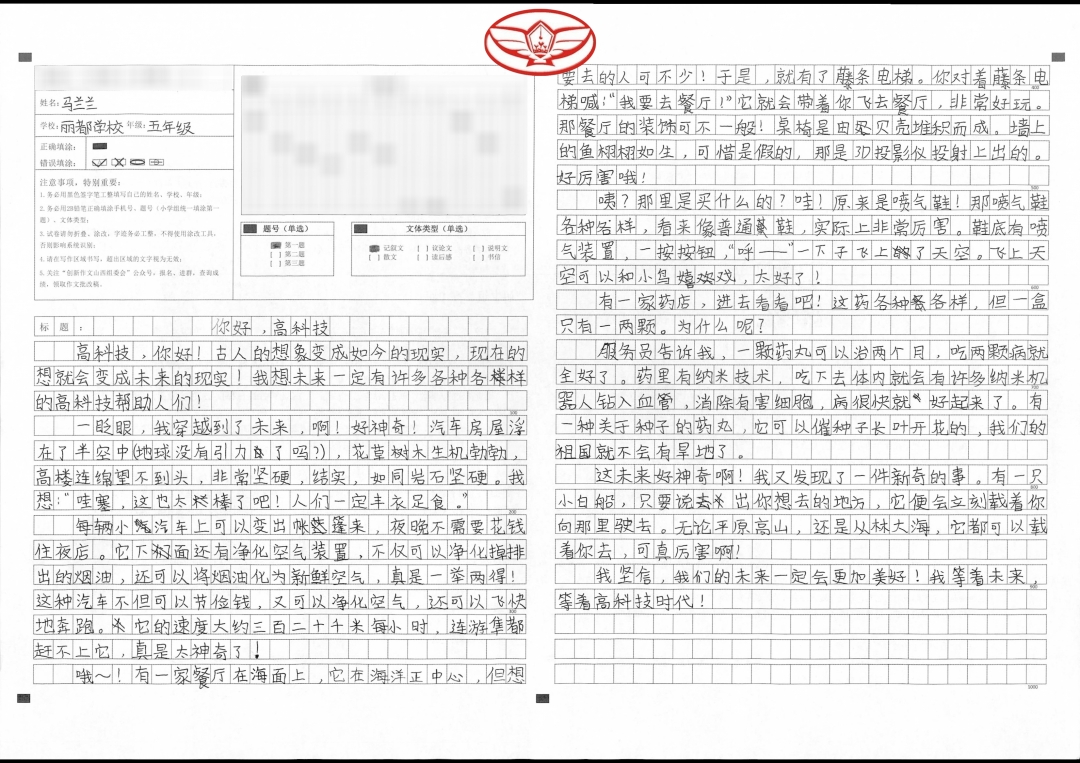 姓名:马兰兰
学校:丽都学校 年级:五年级
正确填涂:
错误填涂:
注意事项，特别重要:
1.务必用黑色签字笔工整填写自己的姓名、学校、年级;
2.务必用2B铅笔正确填涂手机号、题号（小学组统一填涂第一
题）、文体类型;
3.试卷请勿折叠、涂改，字迹务必工整，不得使用涂改工具，
否则影响系统识别;
4.请在写作区域书写，超出区域的文字视为无效;
5.关注“创新作文山西组委会”公众号，报名、进群、查询成
绩、领取作文批改稿。
题号（单选）
第一题
[ ] 第二题
[ ] 第三题
文体类型（单选）
记叙文 [ ] 议论文 [ ] 说明文
[ ] 散文 [ ] 读后感 [ ] 书信
标 题: 你好，高科技
高科技，你好！古人的想象变成如今的现实，现在的
想就会变成未来的现实！我想未来一定有许多各种各样
的高科技帮助人们！
100
一眨眼，我穿越到了未来，啊！好神奇！汽车房屋浮
在了半空中(地球没有引力了吗?)，花草树木生机勃勃，
高楼连绵望不到头，非常坚硬，结实，如同岩石坚硬。我
想:“哇塞，这也太棒了吧！人们一定丰衣足食。”
200
每辆小汽车上可以变出帐篷来，夜晚不需要花钱
住夜店。它下面还有净化空气装置，不仅可以净化指排
出的烟油，还可以将烟油化为新鲜空气，真是一举两得！
这种汽车不但可以节俭钱，又可以净化空气，还可以飞快
300
地奔跑。它的速度大约三百二十千米每小时，连游隼都
赶不上它，真是太神奇了！
哦～！有一家餐厅在海面上，它在海洋正中心，但想
要去的人可不少！于是，就有了藤条电梯。你对着藤条电
400
梯喊:“我要去餐厅！”它就会带着你飞去餐厅，非常好玩。
那餐厅的装饰可不一般！桌椅是由贝壳堆积而成。墙上
的鱼栩栩如生，可惜是假的，那是3D投影仪投射上出的。
好厉害哦！
500
咦？那里是买什么的？哇！原来是喷气鞋！那喷气鞋
各种各样，看来像普通鞋，实际上非常厉害。鞋底有喷
气装置，一按按钮，“呼——”一下子飞上了天空。飞上天
空可以和小鸟嬉戏，太好了！
600
有一家药店，进去看看吧！这药各种各样，但一盒
只有一两颗。为什么呢？
服务员告诉我，一颗药丸可以治两个月，吃两颗病就
全好了。药里有纳米技术，吃下去体内就会有许多纳米机
700
器人钻入血管，消除有害细胞，病很快就好起来了。有
一种关于种子的药丸，它可以催种子长叶开花的，我们的
祖国就不会有旱地了。
这未来好神奇啊！我又发现了一件新奇的事。有一只
800
小白船，只要说出你想去的地方，它便会立刻载着你
向那里驶去。无论平原高山，还是丛林大海，它都可以载
着你去，可真厉害啊！
我坚信，我们的未来一定会更加美好！我等着未来，
900
等着高科技时代！
1000